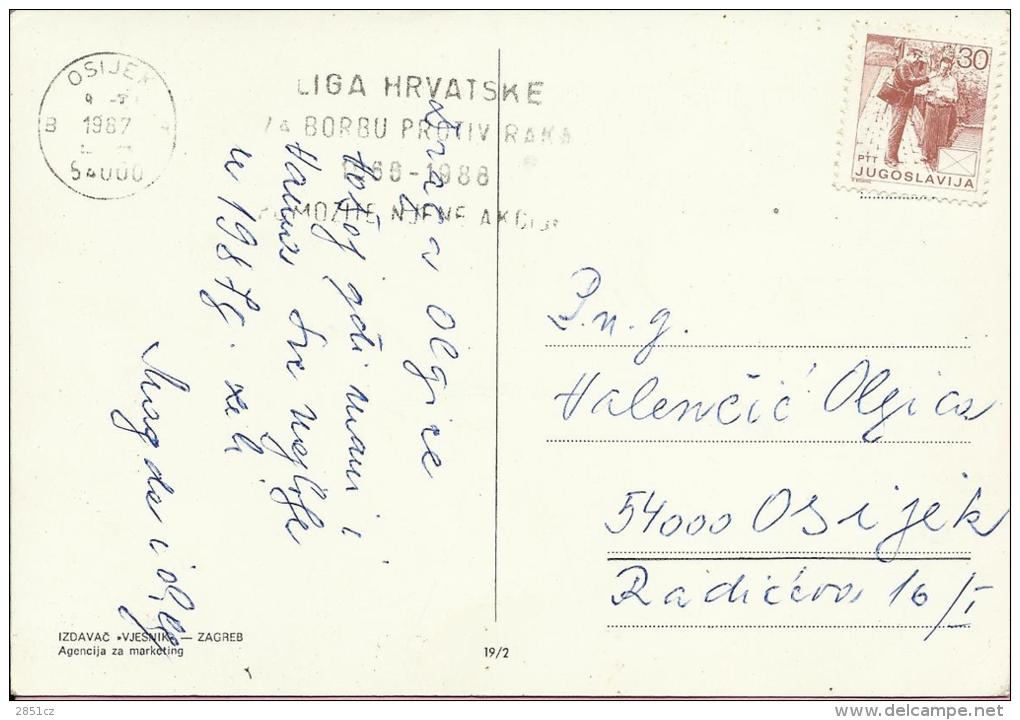 OSIJEK
1987
54000
LIGA HRVATSKE
ZA BORBU PROTIV RAKA
1968-1988
POMOZITE NJENE AKCIJE
30
PTT
JUGOSLAVIJA
Draga Olgice
tvojoj gđi mami i
Hanni sve najljepše
u 1987g. želi
Magda i Olga
P.n.g.
Halenčić Olgica
54000 Osijek
Radićeva 16/I
IZDAVAČ »VJESNIK« — ZAGREB
Agencija za marketing
19/2
2851cz
delcampe.net